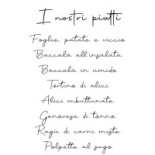 I nostri piatti
Foglie, patate e viccio
Baccalà all'insalata
Baccalà in umido
Tortino di alici
Alici mbuttunate
Genovese di tonno
Ragù di carni miste
Polpette al sugo